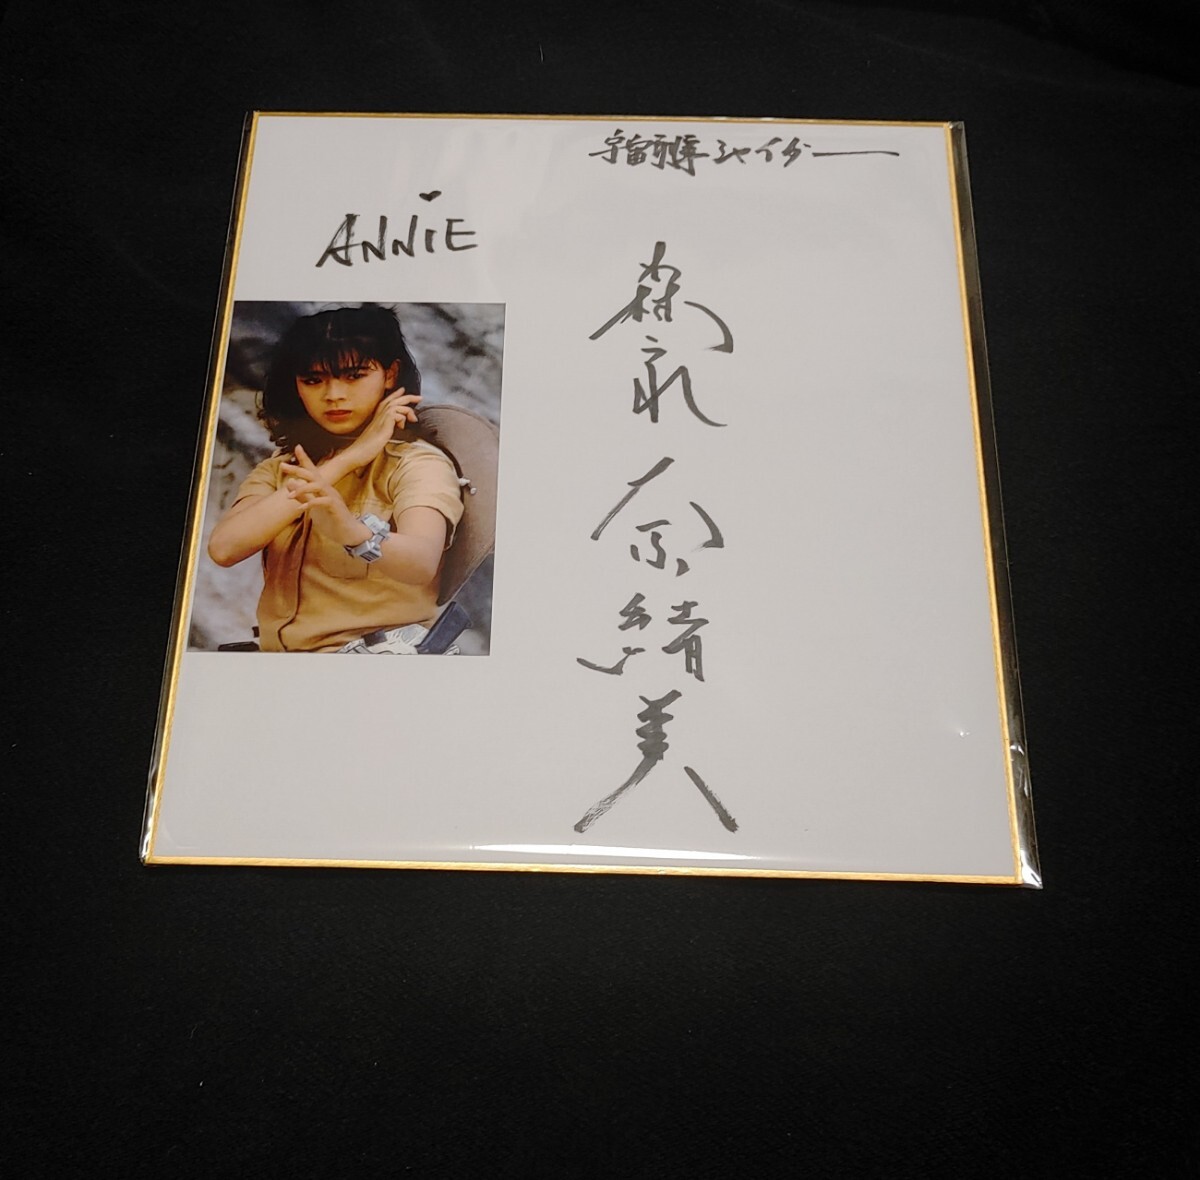 宇宙刑事シャイダー
ANNIE
森永奈緒美